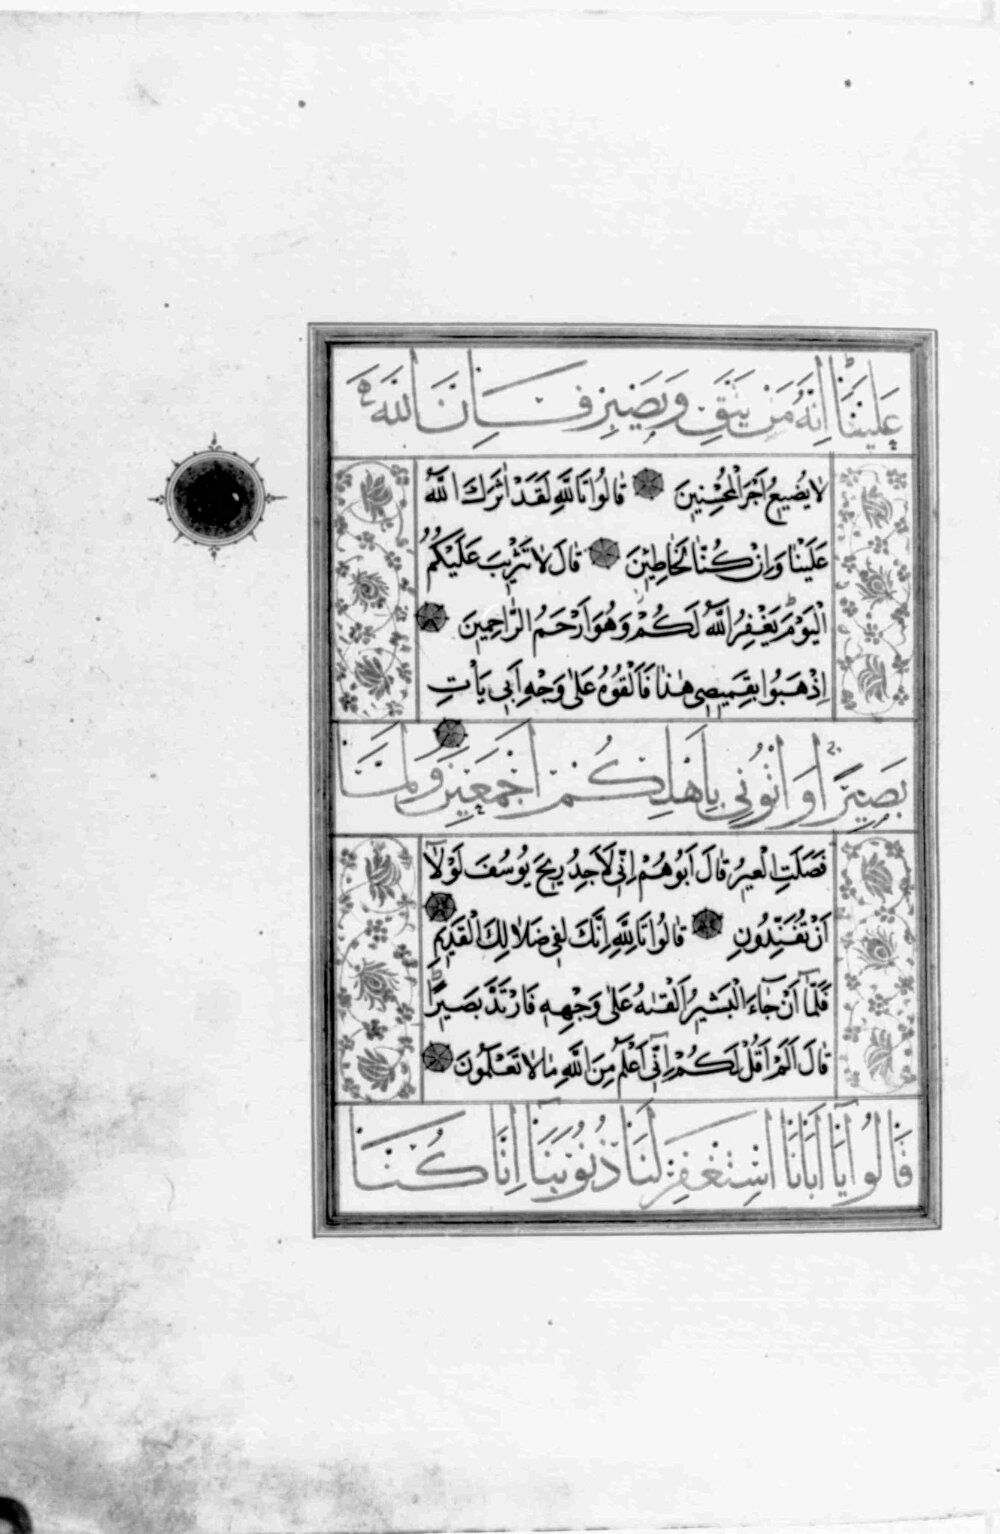 عَلَيْنَا اِنَّهُ مَنْ يَتَّقِ وَيَصْبِرْ فَاِنَّ اللّٰهَ
لَا يُضِيعُ اَجْرَ الْمُحْسِنِينَ قَالُوا تَاللّٰهِ لَقَدْ اٰثَرَكَ اللّٰهُ
عَلَيْنَا وَاِنْ كُنَّا لَخَاطِئِينَ قَالَ لَا تَثْرِيبَ عَلَيْكُمُ
الْيَوْمَ يَغْفِرُ اللّٰهُ لَكُمْ وَهُوَ اَرْحَمُ الرَّاحِمِينَ
اِذْهَبُوا بِقَمِيصِي هٰذَا فَاَلْقُوهُ عَلٰى وَجْهِ اَبِي يَأْتِ
بَصِيرًا وَاْتُونِي بِاَهْلِكُمْ اَجْمَعِينَ وَلَمَّا
فَصَلَتِ الْعِيرُ قَالَ اَبُوهُمْ اِنِّي لَاَجِدُ رِيحَ يُوسُفَ لَوْلَا
اَنْ تُفَنِّدُونِ قَالُوا تَاللّٰهِ اِنَّكَ لَفِي ضَلَالِكَ الْقَدِيمِ
فَلَمَّا اَنْ جَاءَ الْبَشِيرُ اَلْقٰيهُ عَلٰى وَجْهِهِ فَارْتَدَّ بَصِيرًا
قَالَ اَلَمْ اَقُلْ لَكُمْ اِنِّي اَعْلَمُ مِنَ اللّٰهِ مَا لَا تَعْلَمُونَ
قَالُوا يَا اَبَانَا اسْتَغْفِرْ لَنَا ذُنُوبَنَا اِنَّا كُنَّا